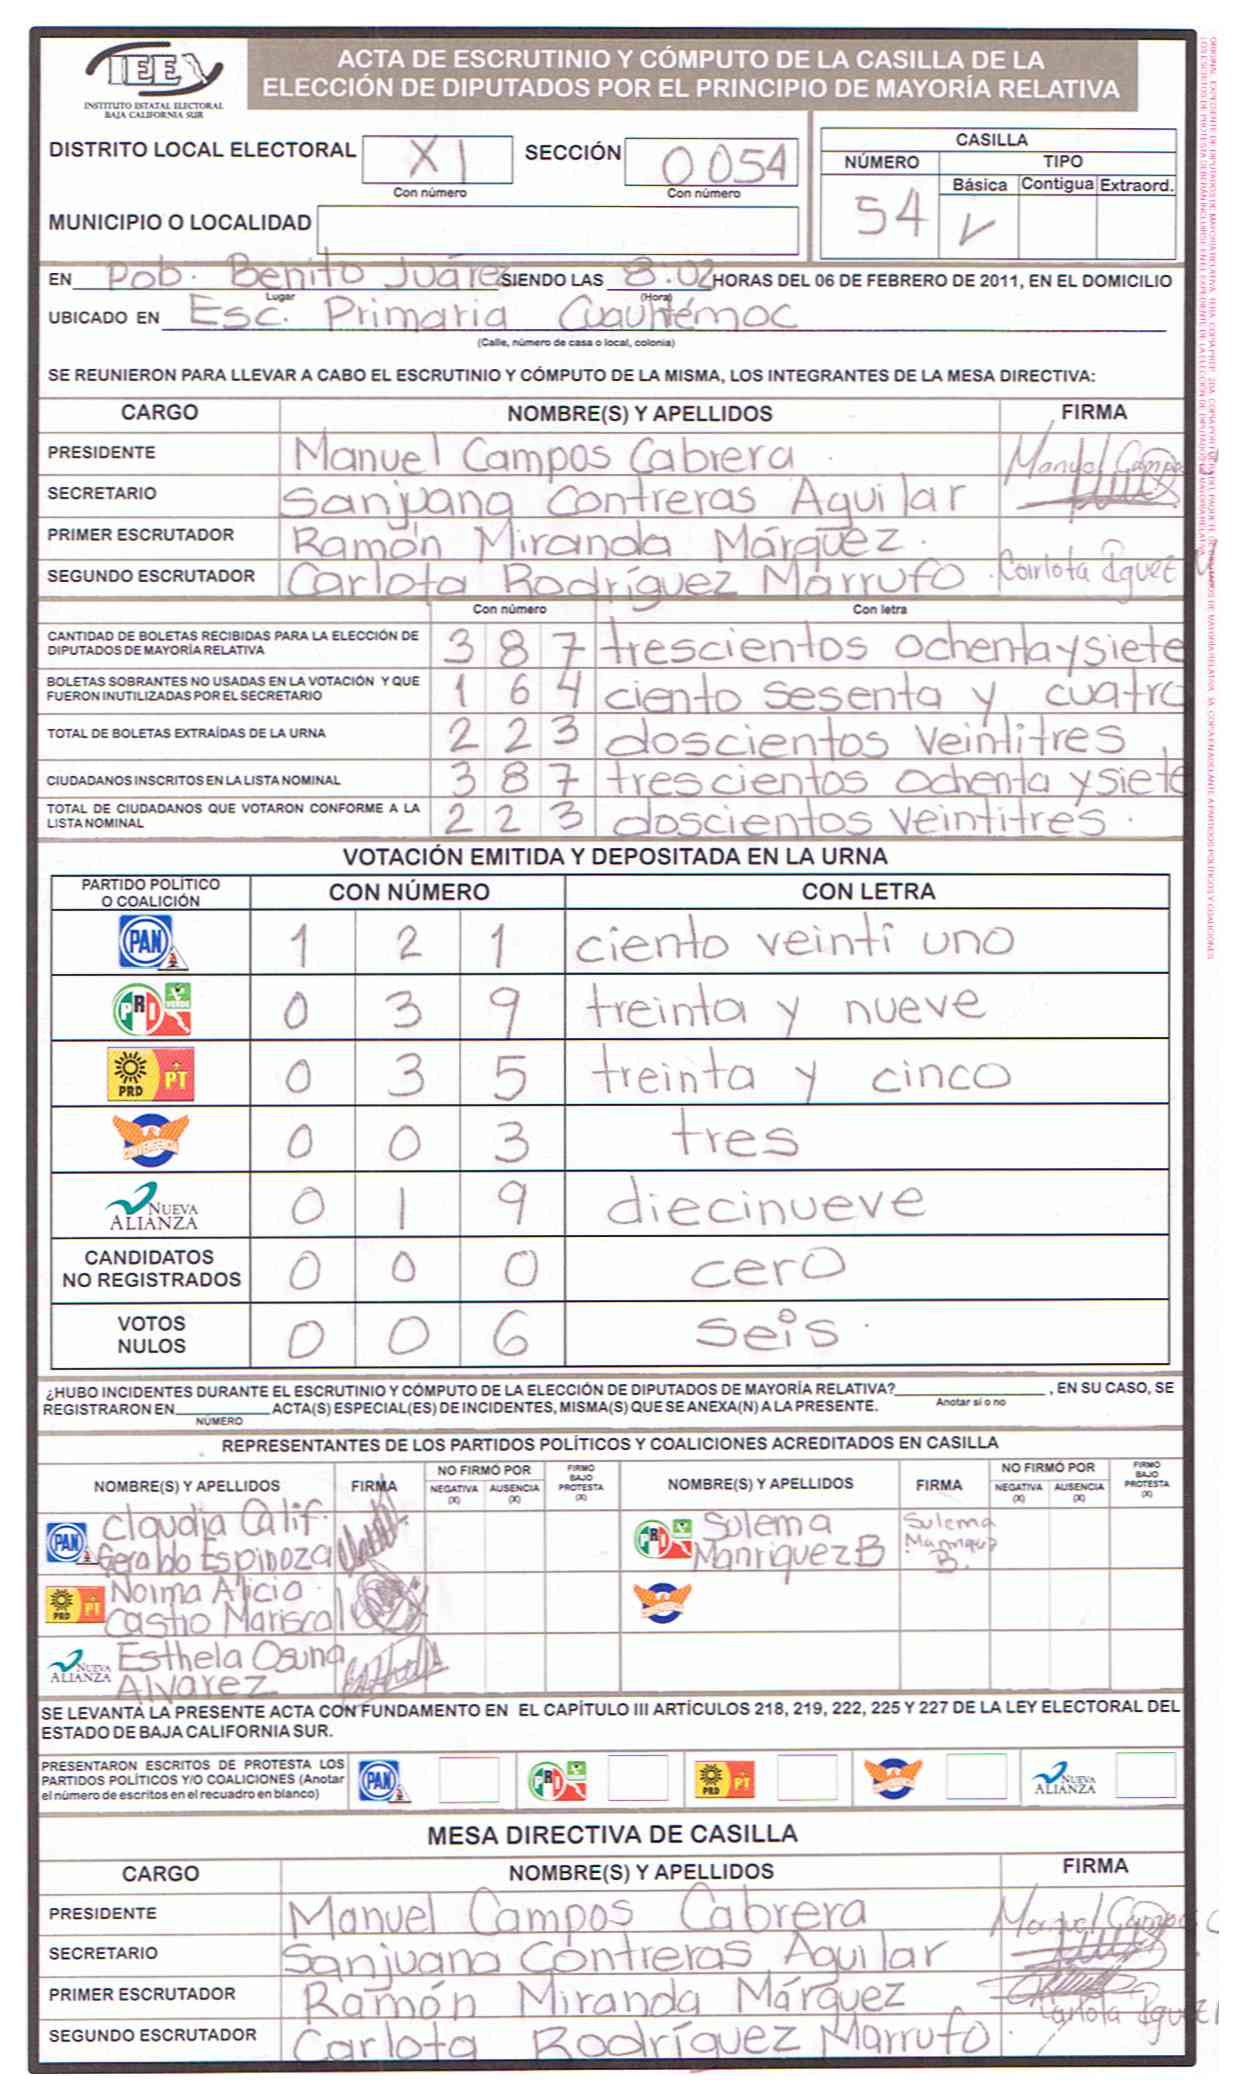 IEE
INSTITUTO ESTATAL ELECTORAL
BAJA CALIFORNIA SUR
ACTA DE ESCRUTINIO Y CÓMPUTO DE LA CASILLA DE LA
ELECCIÓN DE DIPUTADOS POR EL PRINCIPIO DE MAYORÍA RELATIVA
DISTRITO LOCAL ELECTORAL XI SECCIÓN 0054
Con número Con número
MUNICIPIO O LOCALIDAD
CASILLA
NÚMERO TIPO
Básica Contigua Extraord.
54 ✓
EN Pob. Benito Juáres SIENDO LAS 8:02 HORAS DEL 06 DE FEBRERO DE 2011, EN EL DOMICILIO
Lugar (Hora)
UBICADO EN Esc. Primaria Cuauhtémoc
(Calle, número de casa o local, colonia)
SE REUNIERON PARA LLEVAR A CABO EL ESCRUTINIO Y CÓMPUTO DE LA MISMA, LOS INTEGRANTES DE LA MESA DIRECTIVA:
CARGO NOMBRE(S) Y APELLIDOS FIRMA
PRESIDENTE Manuel Campos Cabrera Manuel Campos
SECRETARIO Sanjuana Contreras Aguilar
PRIMER ESCRUTADOR Ramón Miranda Márquez.
SEGUNDO ESCRUTADOR Carlota Rodríguez Marrufo. Carlota
Con número Con letra
CANTIDAD DE BOLETAS RECIBIDAS PARA LA ELECCIÓN DE
DIPUTADOS DE MAYORÍA RELATIVA 3 8 7 trescientos ochenta y siete
BOLETAS SOBRANTES NO USADAS EN LA VOTACIÓN Y QUE
FUERON INUTILIZADAS POR EL SECRETARIO 1 6 4 ciento sesenta y cuatro
TOTAL DE BOLETAS EXTRAÍDAS DE LA URNA 2 2 3 doscientos veintitres
CIUDADANOS INSCRITOS EN LA LISTA NOMINAL 3 8 7 trescientos ochenta y siete
TOTAL DE CIUDADANOS QUE VOTARON CONFORME A LA
LISTA NOMINAL 2 2 3 doscientos veintitres.
VOTACIÓN EMITIDA Y DEPOSITADA EN LA URNA
PARTIDO POLÍTICO
O COALICIÓN CON NÚMERO CON LETRA
PAN 1 2 1 ciento veinti uno
PRI VERDE 0 3 9 treinta y nueve
PRD PT 0 3 5 treinta y cinco
CONVERGENCIA 0 0 3 tres
NUEVA ALIANZA 0 1 9 diecinueve
CANDIDATOS
NO REGISTRADOS 0 0 0 cero
VOTOS
NULOS 0 0 6 seis.
¿HUBO INCIDENTES DURANTE EL ESCRUTINIO Y CÓMPUTO DE LA ELECCIÓN DE DIPUTADOS DE MAYORÍA RELATIVA? , EN SU CASO, SE
Anotar sí o no
REGISTRARON EN ACTA(S) ESPECIAL(ES) DE INCIDENTES, MISMA(S) QUE SE ANEXA(N) A LA PRESENTE.
NÚMERO
REPRESENTANTES DE LOS PARTIDOS POLÍTICOS Y COALICIONES ACREDITADOS EN CASILLA
NOMBRE(S) Y APELLIDOS FIRMA NO FIRMÓ POR NEGATIVA (X) AUSENCIA (X) FIRMO BAJO PROTESTA (X) NOMBRE(S) Y APELLIDOS FIRMA NO FIRMÓ POR NEGATIVA (X) AUSENCIA (X) FIRMO BAJO PROTESTA (X)
PAN Claudia Calif. PRI Sulema Sulema
Geraldo Espinoza Manriquez B Manriquez B.
PRD PT Norma Alicia
Castro Mariscal
NUEVA ALIANZA Esthela Osuna
Alvarez
SE LEVANTA LA PRESENTE ACTA CON FUNDAMENTO EN EL CAPÍTULO III ARTÍCULOS 218, 219, 222, 225 Y 227 DE LA LEY ELECTORAL DEL
ESTADO DE BAJA CALIFORNIA SUR.
PRESENTARON ESCRITOS DE PROTESTA LOS
PARTIDOS POLÍTICOS Y/O COALICIONES (Anotar
el número de escritos en el recuadro en blanco) PAN PRI PRD PT NUEVA ALIANZA
MESA DIRECTIVA DE CASILLA
CARGO NOMBRE(S) Y APELLIDOS FIRMA
PRESIDENTE Manuel Campos Cabrera Manuel Campos C
SECRETARIO Sanjuana Contreras Aguilar
PRIMER ESCRUTADOR Ramón Miranda Márquez
SEGUNDO ESCRUTADOR Carlota Rodríguez Marrufo. Carlota